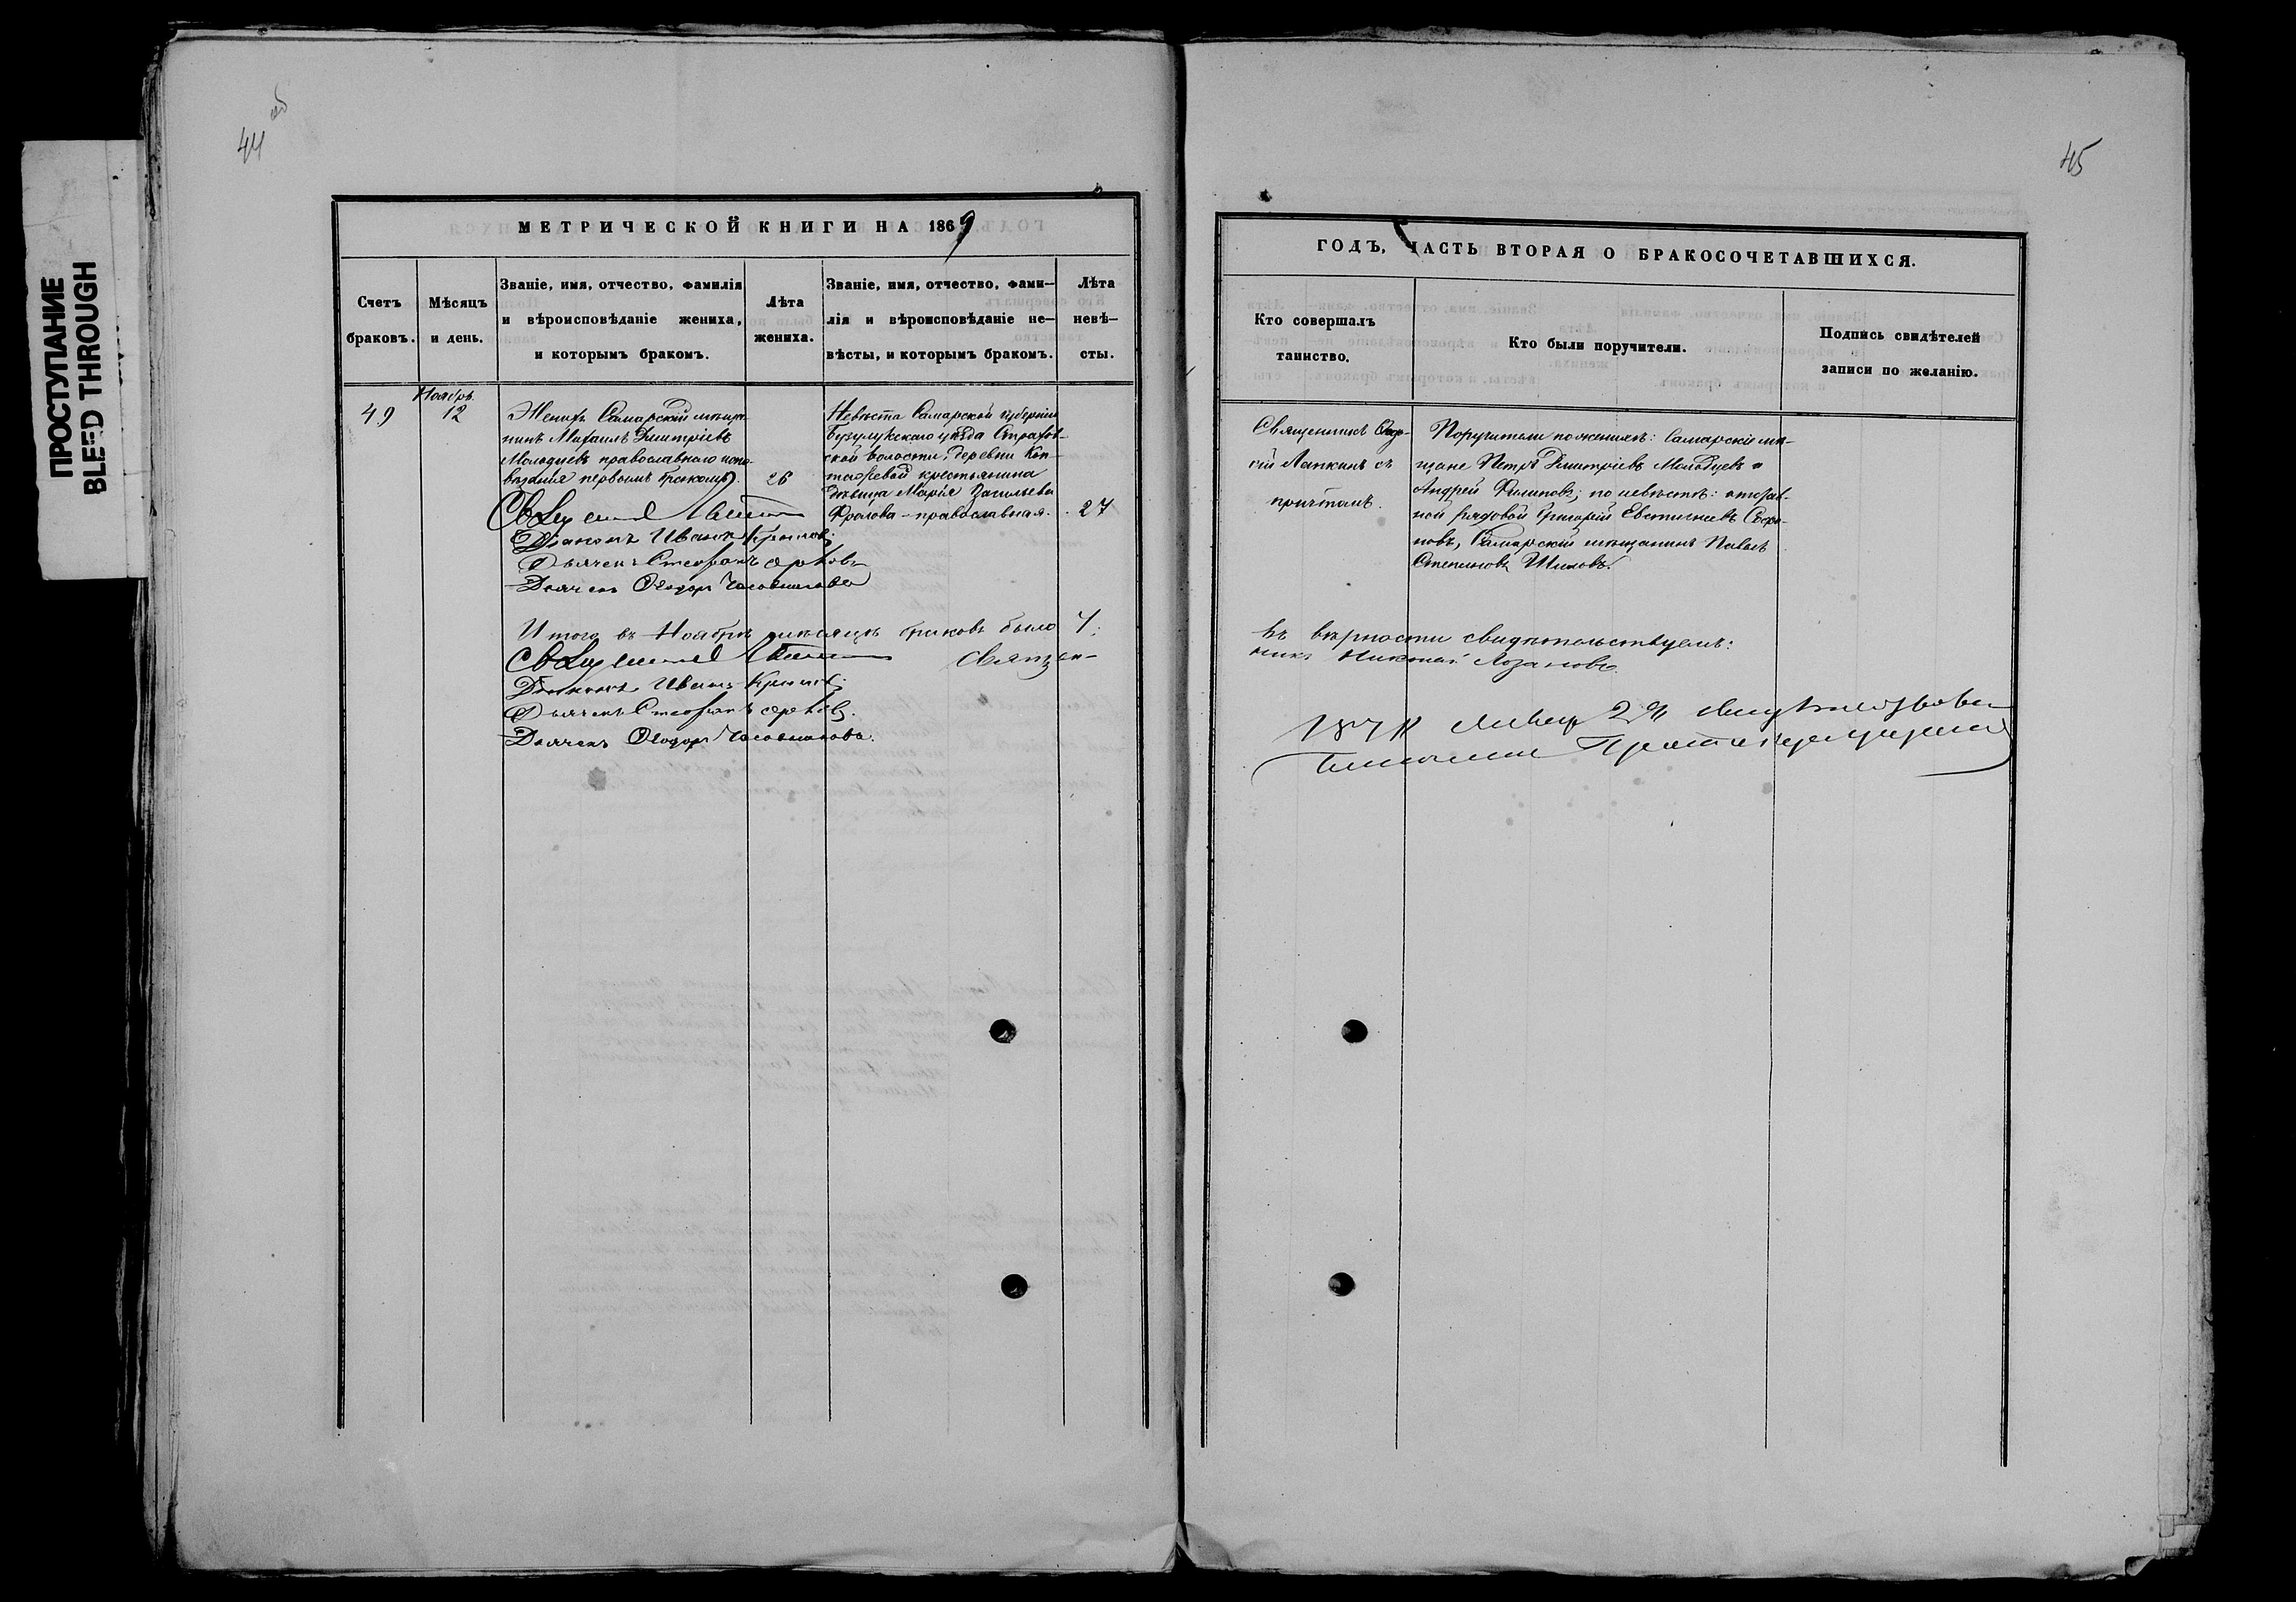 44 об
45
ПРОСТУПАНИЕ
BLEED THROUGH
МЕТРИЧЕСКОЙ КНИГИ НА 1869
Счетъ
браковъ.
Мѣсяцъ
и день.
Званіе, имя, отчество, фамилія
и вѣроисповѣданіе жениха,
и которымъ бракомъ.
Лѣта
жениха.
Званіе, имя, отчество, фами—
лія и вѣроисповѣданіе не—
вѣсты, и которымъ бракомъ.
Лѣта
невѣ—
сты.
49
Ноябрь.
12
Женихъ Самарскій мѣща-
нинъ Михаилъ Дмитріевъ
Молодцевъ православнаго испо-
вѣданія первымъ бракомъ.
26
Невѣста Самарской губерніи
Бузулукскаго уѣзда Страхов-
ской волости, деревни
крестьянина
дѣвица Марія Васильева
Фролова - православная.
27
Священникъ
Діаконъ Иванъ Крыловъ
Дьячекъ Стефанъ
Дьячекъ Ѳеодоръ
Итого въ Ноябрѣ мѣсяцѣ браковъ было 7.
Священникъ
Діаконъ Иванъ Крыловъ
Дьячекъ Стефанъ
Дьячекъ Ѳеодоръ
ГОДЪ, ЧАСТЬ ВТОРАЯ О БРАКОСОЧЕТАВШИХСЯ.
Кто совершалъ
таинство.
Кто были поручители.
Подпись свидѣтелей
записи по желанію.
Священникъ
Лапкинъ съ
причтомъ.
Поручители по женихѣ: Самарскіе мѣ-
щане Петръ Дмитріевъ Молодцевъ и
Андрей Филиповъ; по невѣстѣ: отстав-
ной рядовой Григорій Евстигнеевъ
Самарскій мѣщанинъ Павелъ
Степановъ Шиловъ.
Въ вѣрности свидѣтельствуемъ:
Священ-
никъ Николай Лозановъ.